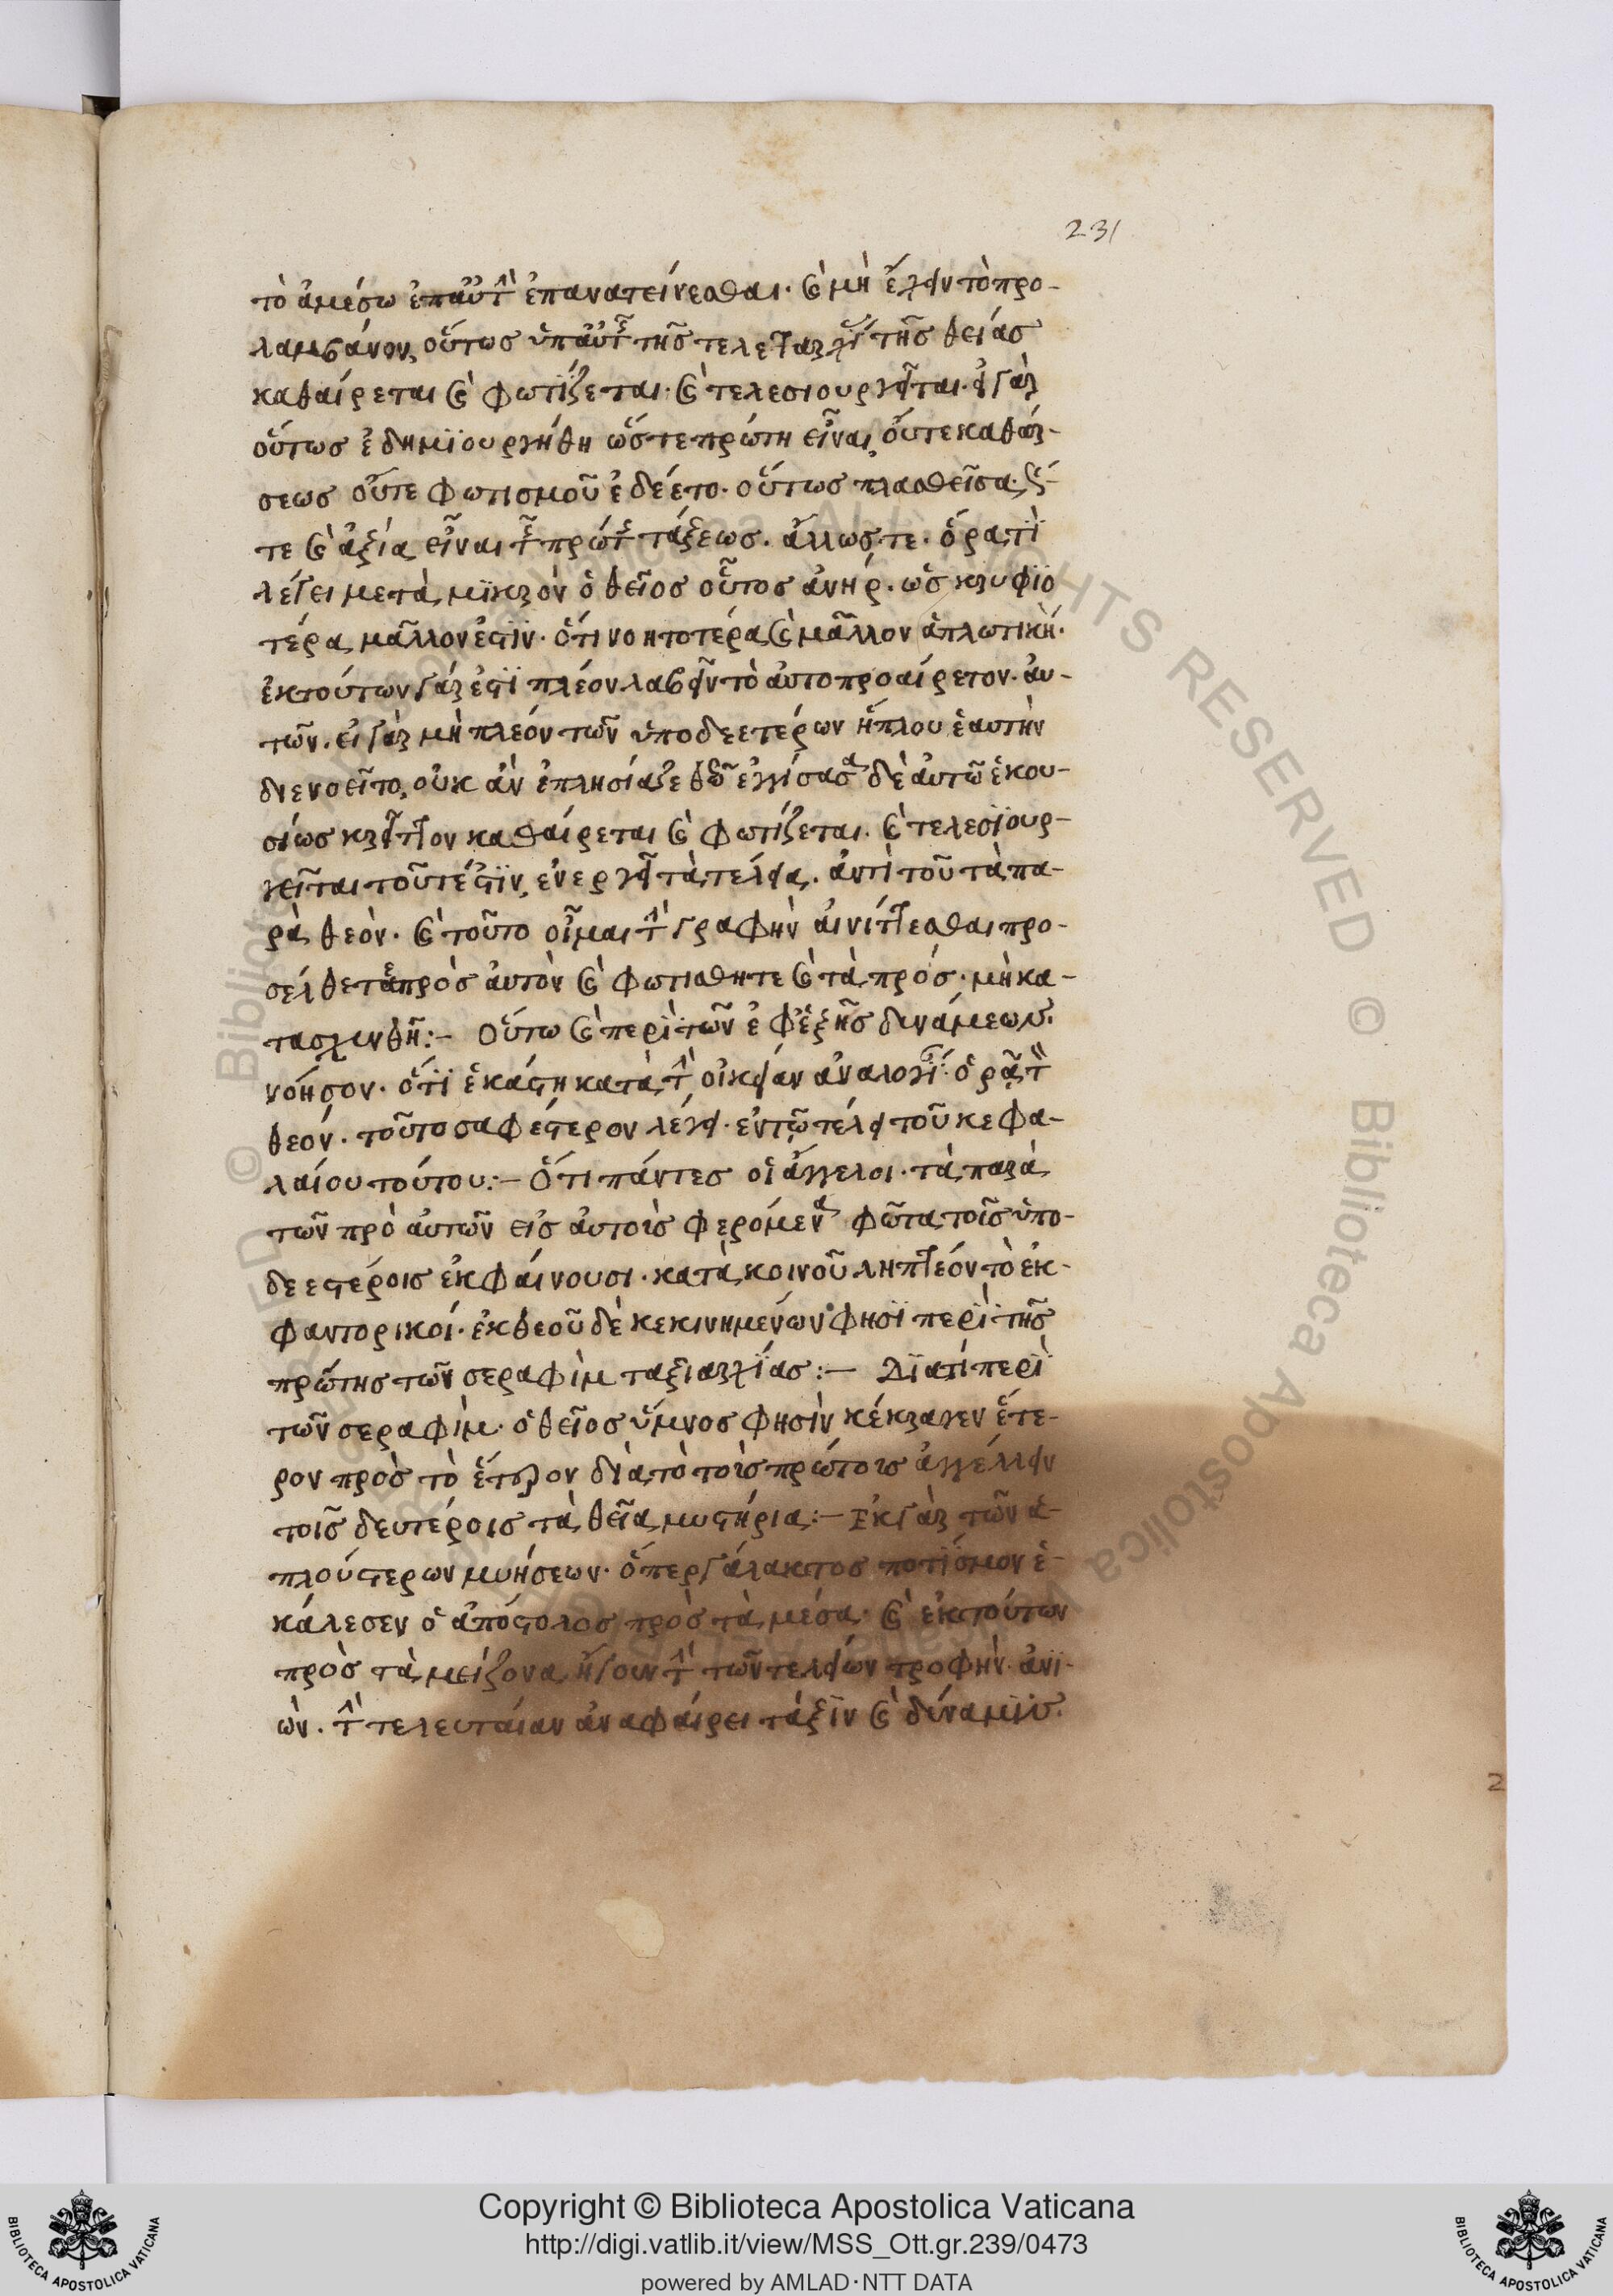 231
τὸ ἀμέσω ἐπαὐτὴν ἐπανατείνεσθαι. καὶ μὴ ἔχειν τὸ προ-
λαμβάνον, οὕτως ὑπαὐτῆς τῆς τελεταρχίας τῆς θείας
καθαίρεται καὶ φωτίζεται. καὶ τελεσιουργεῖται. εἰ γὰρ
οὕτως ἐδημϊουργήθη ὥστε πρώτη εἶναι, οὔτε καθάρ-
σεως οὔτε φωτισμοῦ ἐδέετο. οὕτως πλασθεῖσα.
τε καὶ ἀξία εἶναι τῆς πρώτης τάξεως. ἄλλωστε. ὅρα τί
λέγει μετὰ μϊκρὸν ὁ θεῖος οὗτος ἀνήρ. ὡς κρυφϊο
τέρα μᾶλλον ἐστϊν. ὅτι νοητοτέρα καὶ μᾶλλον ἁπλωτικὴ.
ἐκ τούτων γάρ ἐστϊ πλέον λαβεῖν τὸ αὐτοπροαίρετον. αὐ-
τῶν. εἰ γὰρ μὴ πλέον τῶν ὑποδεεστέρων ἥπλου ἑαυτὴν
διενοεῖτο, οὐκ ἂν ἐπλησίαζε θεῷ ἐγγίσασα δὲ αὐτῶ ἑκου-
σίως κρεῖττον καθαίρεται καὶ φωτίζεται. καὶ τελεσϊουρ-
γεῖται τοῦτέστϊν, ἐνεργεῖ τὰ τέλεια. ἀντὶ τοῦ τὰ πα-
ρὰ θεὸν. καὶ τοῦτο οἶμαι τὴν γραφὴν αἰνίττεσθαι προ-
σέλθετε πρὸς αὐτὸν καὶ φωτισθητε καὶ τὰ πρός. μὴ κα-
ταισχυνθῆ:- Οὕτω καὶ περὶ τῶν ἐφεξῆς δυνάμεων
νόησον. ὅτϊ ἑκάστη κατὰ τὴν οἰκείαν ἀναλογίαν ὁρᾶ τὸν
θεόν. τοῦτο σαφέστερον λέγει. ἐν τῶ τέλει τοῦ κεφα-
λαίου τούτου:- Ὅτι πάντες οἱ ἄγγελοι. τὰ παρὰ
τῶν πρὸ αὐτῶν εἰς αὐτοὺς φερόμενα φῶτα τοῖς ὑπο-
δεεστέροις ἐκφαίνουσι. κατὰ κοινοῦ ληπτέον τὸ ἐκ-
φαντορικοί. ἐκ θεοῦ δὲ κεκινημένων φησϊ περὶ τῆς
πρώτης τῶν σεραφὶμ ταξιαρχϊας:- Δϊατὶ περὶ
τῶν σεραφὶμ. ὁ θεῖος ὕμνος φησὶν κέκραγεν ἕτε-
ρον πρὸς τὸ ἕτερον διὰ τὸ τοὺς πρώτους ἀγγέλλειν
τοῖς δευτέροις τὰ θεῖα μυστήρια:- Ἐκ γὰρ τῶν ἁ-
πλούστερων μυήσεων. ὅπερ γάλακτος ποτϊσμον ἐ-
κάλεσεν ὁ ἀπόστολος πρὸς τὰ μέσα. καὶ ἐκ τούτων
πρὸς τὰ μείζονα, ἤγουν τὴν τῶν τελείων τροφὴν. ἀνϊ-
ὼν. τὴν τελευταίαν ἀναφαίρει τάξϊν καὶ δύναμϊν.
2
Copyright © Biblioteca Apostolica Vaticana
http://digi.vatlib.it/view/MSS_Ott.gr.239/0473
powered by AMLAD·NTT DATA
BIBLIOTECA APOSTOLICA VATICANA
BIBLIOTECA APOSTOLICA VATICANA